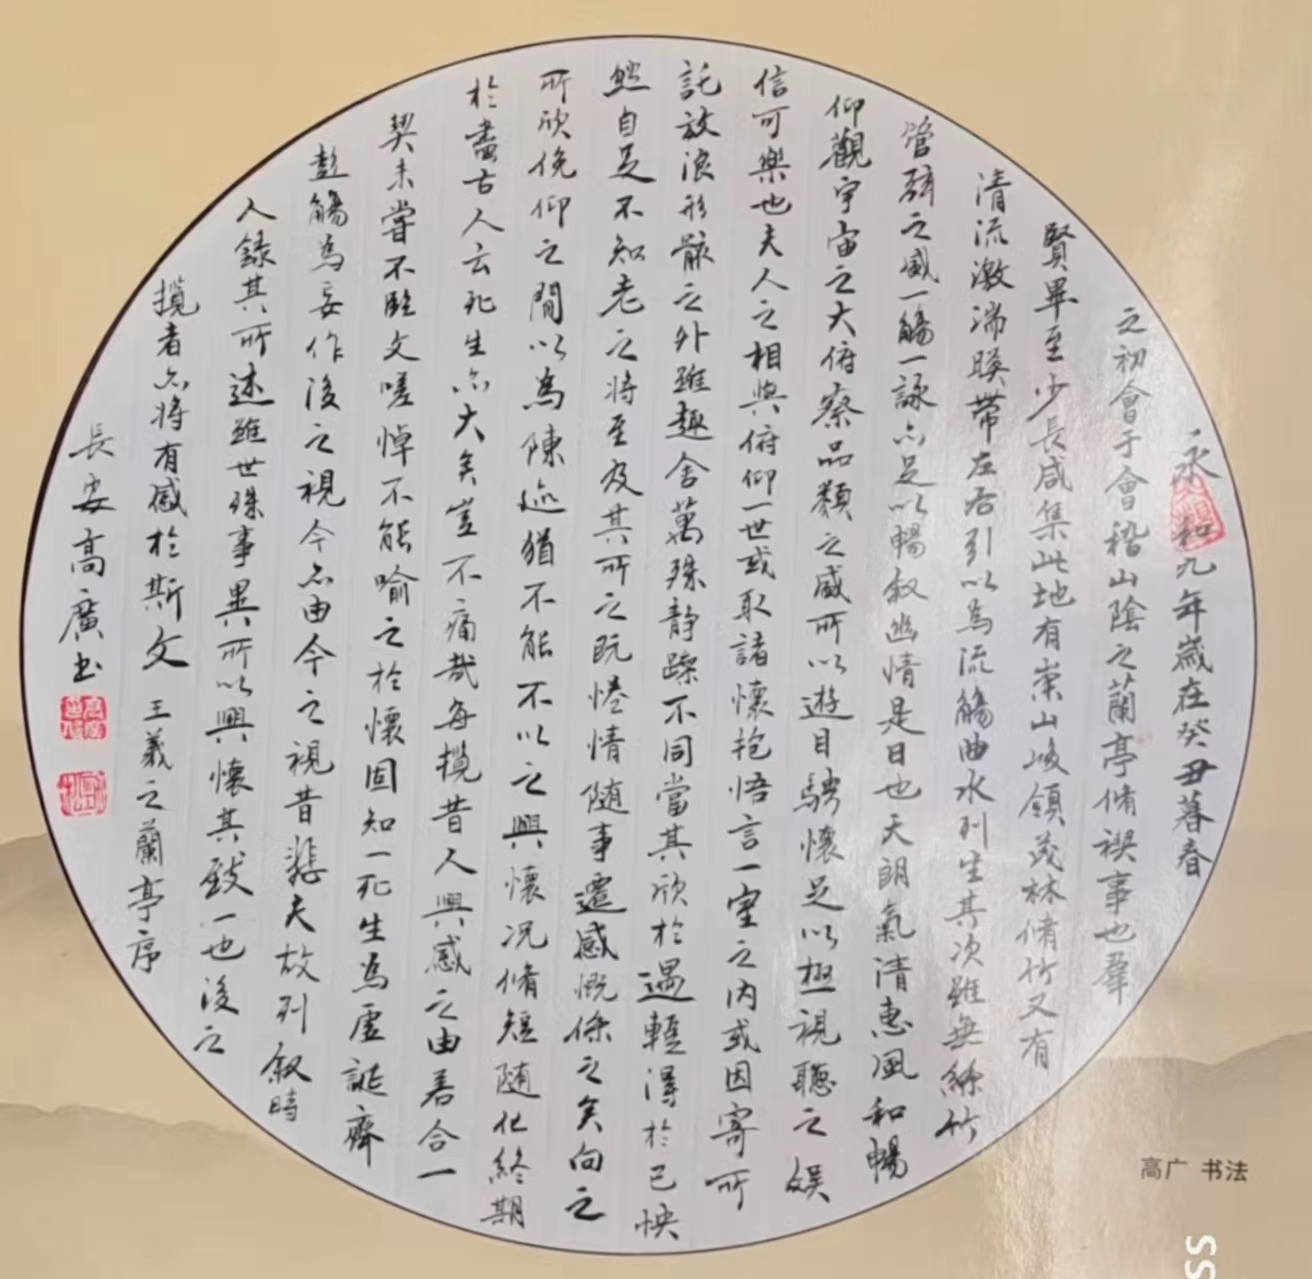 永和九年歲在癸丑暮春
之初會于會稽山陰之蘭亭脩禊事也羣
賢畢至少長咸集此地有崇山峻領茂林脩竹又有
清流激湍暎帶左右引以為流觴曲水列坐其次雖無絲竹
管弦之盛一觴一詠亦足以暢叙幽情是日也天朗氣清惠風和暢
仰觀宇宙之大俯察品類之盛所以遊目騁懷足以極視聽之娛
信可樂也夫人之相與俯仰一世或取諸懷抱悟言一室之内或因寄所
託放浪形骸之外雖趣舍萬殊静躁不同當其欣於所遇輕得於己怏
然自足不知老之將至及其所之既惓情随事遷感慨係之矣向之
所欣俛仰之間以為陳迹猶不能不以之興懷况脩短随化終期
於盡古人云死生亦大矣豈不痛哉每攬昔人興感之由若合一
契未嘗不臨文嗟悼不能喻之於懷固知一死生為虛誕齊
彭觴為妄作後之視今亦由今之視昔悲夫故列叙時
人錄其所述雖世殊事異所以興懷其致一也後之
攬者亦將有感於斯文 王羲之蘭亭序
長安高廣书
高广 书法
SS